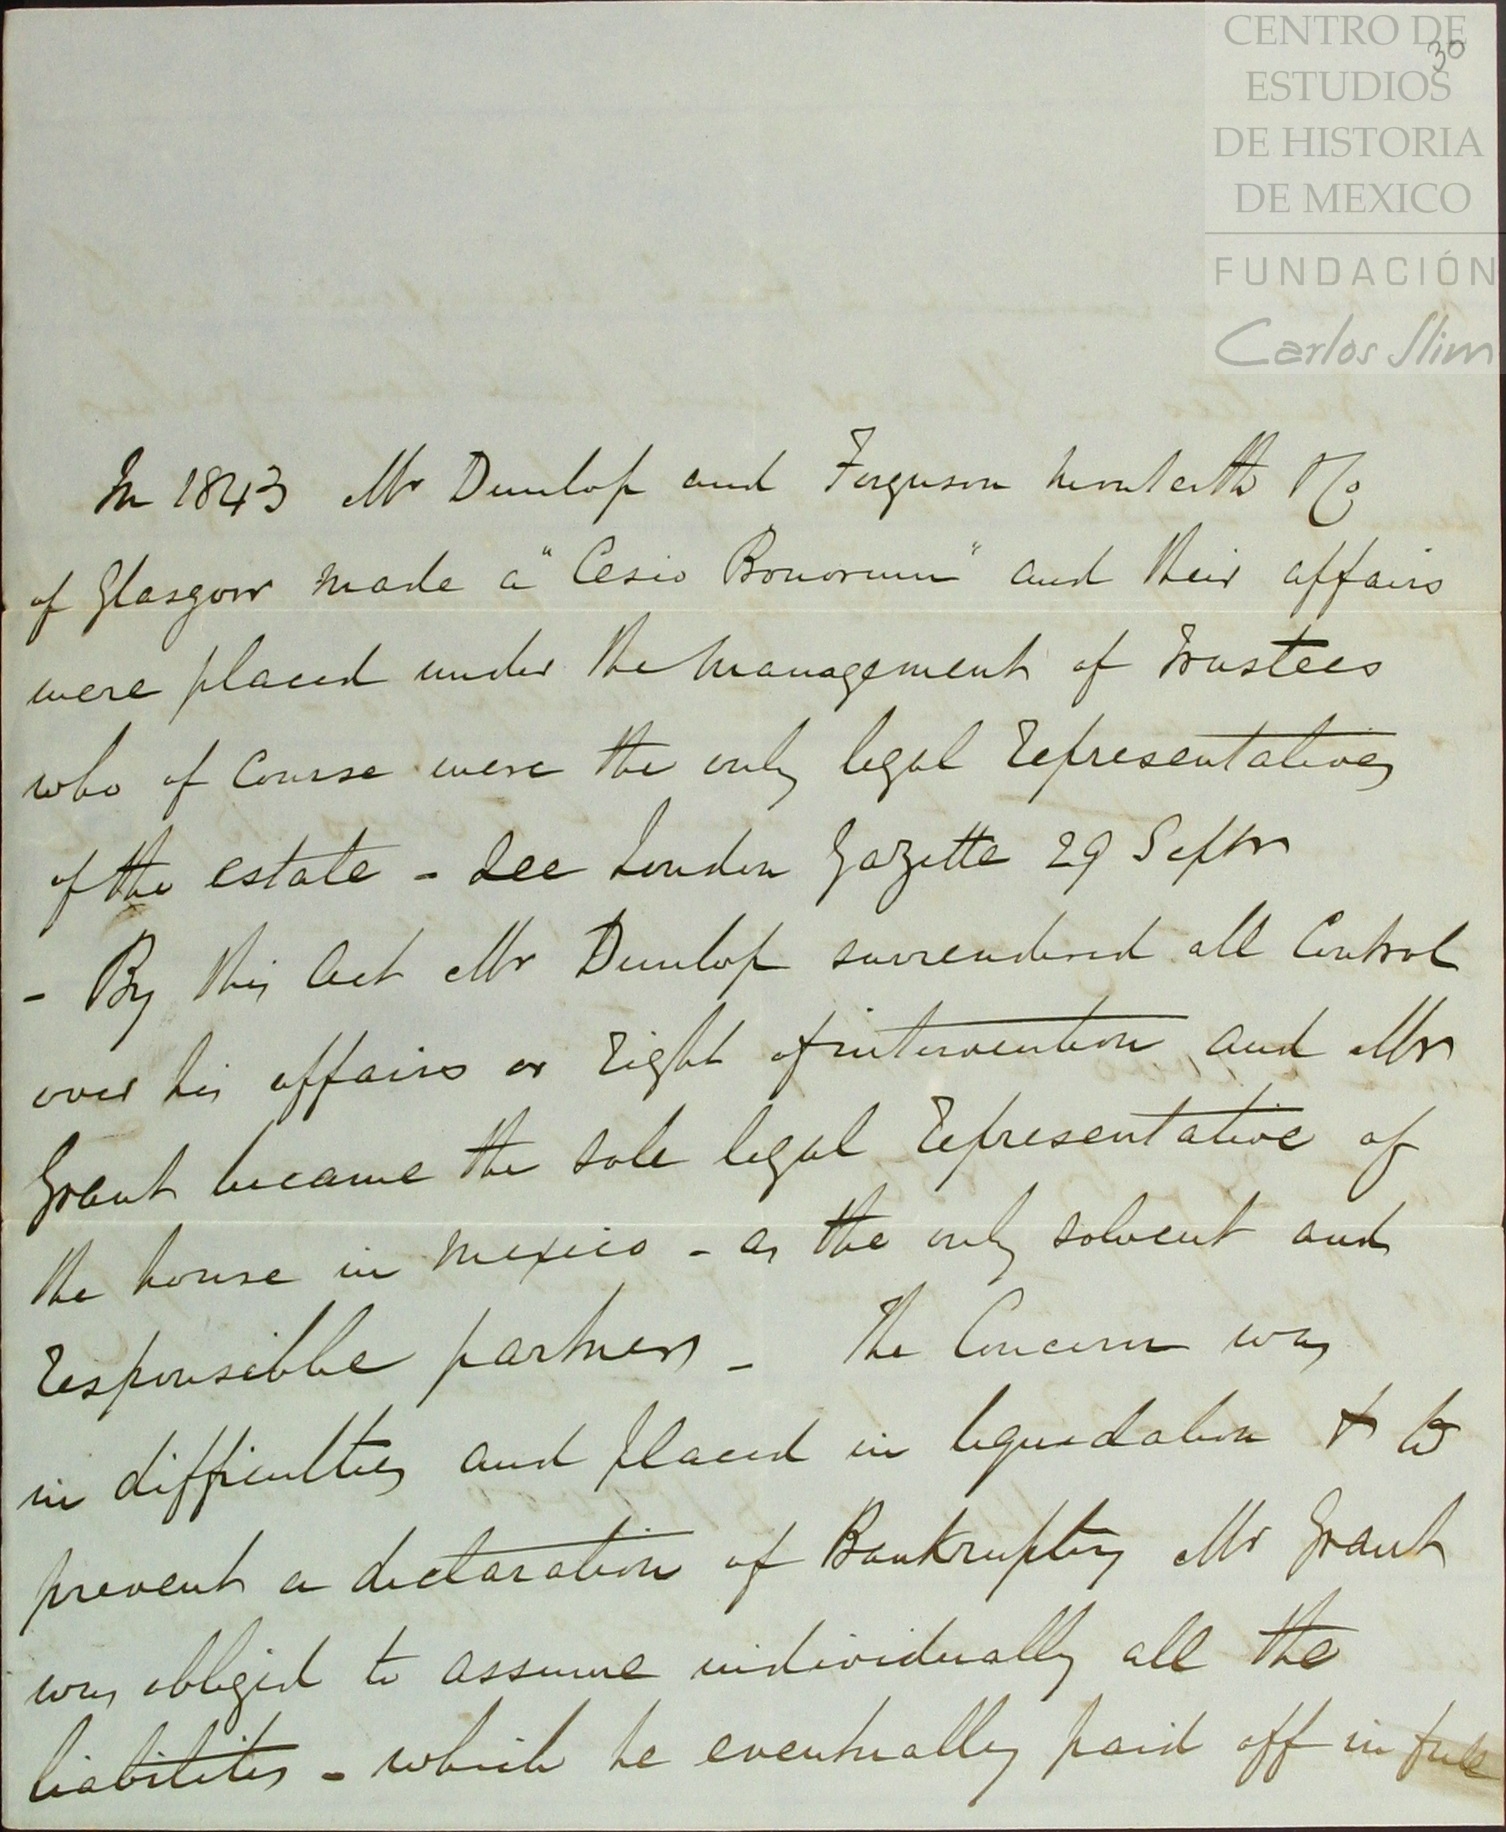 CENTRO DE
ESTUDIOS
DE HISTORIA
DE MEXICO
FUNDACIÓN
Carlos Slim
30
In 1843 Mr Dunlop and Ferguson Monteith & Co
of Glasgow made a "Cesio Bonorum" and their affairs
were placed under the management of Trustees
who of course were the only legal Representatives
of the estate - See London Gazette 29 Septr
- By this act Mr Dunlop surrendered all Control
over his affairs or Right of intervention and Mr
Grant became the sole legal Representative of
the house in Mexico - as the only solvent and
Responsible partner - The Concern was
in difficulties and placed in liquidation & to
prevent a declaration of Bankruptcy Mr Grant
was obliged to assume individually all the
liabilities - which he eventually paid off in full